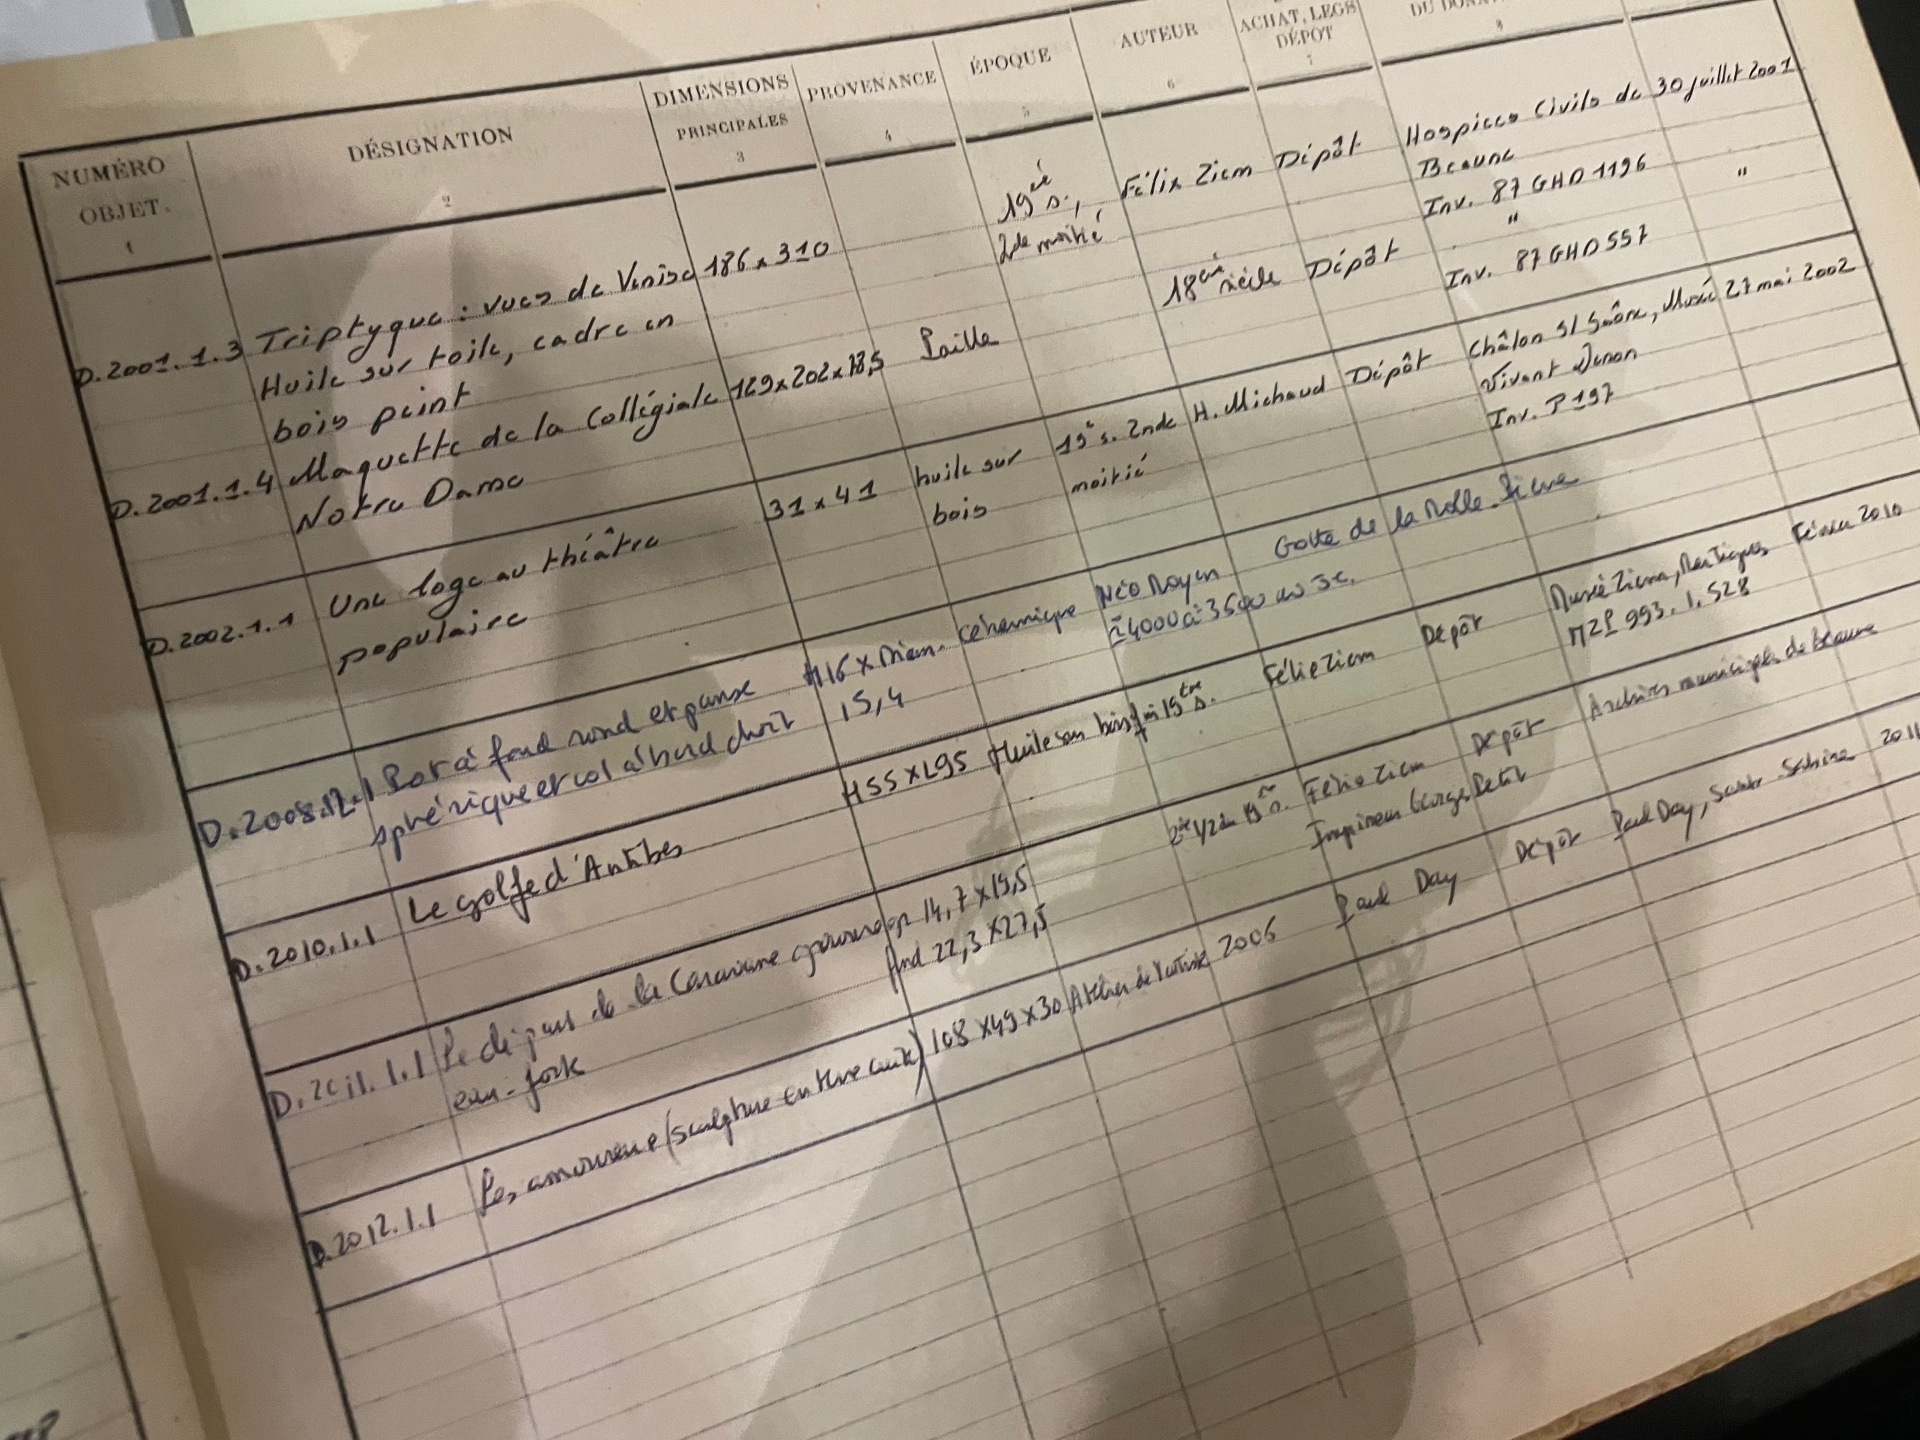 NUMÉRO OBJET. DÉSIGNATION DIMENSIONS PRINCIPALES PROVENANCE ÉPOQUE AUTEUR ACHAT, LEGS DÉPOT
1 2 3 4 5 6 7 8
D.2001.1.3 Triptyque : vues de Venise 186 x 310 19ème s., Félix Ziem Dépôt Hospices Civils de 30 juillet 2001
Huile sur toile, cadre en 2de moitié Beaune
bois peint Inv. 87 GHD 1196
D.2001.1.4 Maquette de la Collégiale 129x202x18,5 Paille 18ème siècle Dépôt " "
Notre Dame Inv. 87 GHD 557
D.2002.1.1 Une loge au théâtre 31 x 41 huile sur 19è s. 2nde H. Michaud Dépôt Châlon s/ Saône, Musée 27 mai 2002
populaire bois moitié Vivant Denon
Inv. P 197
D.2008.12.1 Pot à fond rond et panse H16 x Diam. céramique Néo Moyen Grotte de la Molle-Pierre
sphérique et col à bord droit 15,4 ≈ 4000 à 3500 av JC.
D.2010.1.1 Le golfe d'Antibes H55 x L95 Huile sur bois fin 19è s. Félix Ziem Dépôt Musée Ziem, Martigues Février 2010
MZP 993.1.528
D.2011.1.1 Le départ de la Caravane gravure 14,7 x 19,5 2è 1/2 du 19è s. Félix Ziem Dépôt Archives municipales de Beaune
eau-forte 22,3 x 27,5 Imprimeur Georges Petit
D.2012.1.1 Les amoureux (sculpture en terre cuite) 108 x 49 x 30 Atelier de l'artiste 2006 Paul Day Dépôt Paul Day, Sainte Sabine